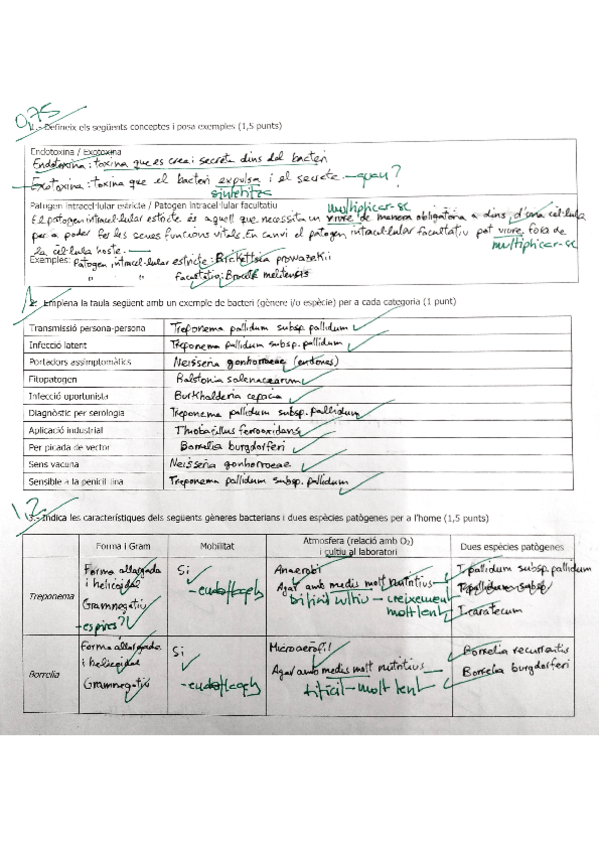 0,75
1.- Defineix els següents conceptes i posa exemples (1,5 punts)
Endotoxina / Exotoxina
Endotoxina: toxina que es crea i secreta dins del bacteri
Exotoxina: toxina que el bacteri expulsa i el secreta. quan?
sintetitza
Patogen intracel·lular estricte / Patogen intracel·lular facultatiu
multiplicar-se
El patogen intracel·lular estricte és aquell que necessita un viure de manera obligatòria a dins d'una cèl·lula
per a poder fer les seues funcions vitals. En canvi el patogen intracel·lular facultatiu pot viure fora de
la cèl·lula hoste. multiplicar-se
Exemples: Patogen intracel·lular estricte: Rickettsia prowazekii
" " facultatiu: Brucella melitensis
1
2.- Emplena la taula següent amb un exemple de bacteri (gènere i/o espècie) per a cada categoria (1 punt)
Transmissió persona-persona Treponema pallidum subsp. pallidum
Infecció latent Treponema pallidum subsp. pallidum
Portadors assimptomàtics Neisseria gonhorroeae
Fitopatogen Ralstonia solanacearum
Infecció oportunista Burkholderia cepacia
Diagnòstic per serologia Treponema pallidum subsp. pallidum
Aplicació industrial Thiobacillus ferrooxidans
Per picada de vector Borrelia burgdorferi
Sens vacuna Neisseria gonhorroeae
Sensible a la penicil·lina Treponema pallidum subsp. pallidum
1,2
3.- Indica les característiques dels següents gèneres bacterians i dues espècies patògenes per a l'home (1,5 punts)
Forma i Gram Mobilitat Atmosfera (relació amb O₂) i cultiu al laboratori Dues espècies patògenes
Treponema
Forma allargada
i helicoidal
Gramnegatiu
espires?
Si
- endoflagels
Anaerobi
Agar amb medis molt nutritius
difícil cultiu - creixement
molt lent
T. pallidum subsp. pallidum
T. pallidum subsp
T. carateum
Borrelia
Forma allargada
i helicoidal
Gramnegatiu
Si
- endoflagels
Microaeròfil
Agar amb medis molt nutritius
difícil - molt lent
Borrelia recurrentis
Borrelia burgdorferi